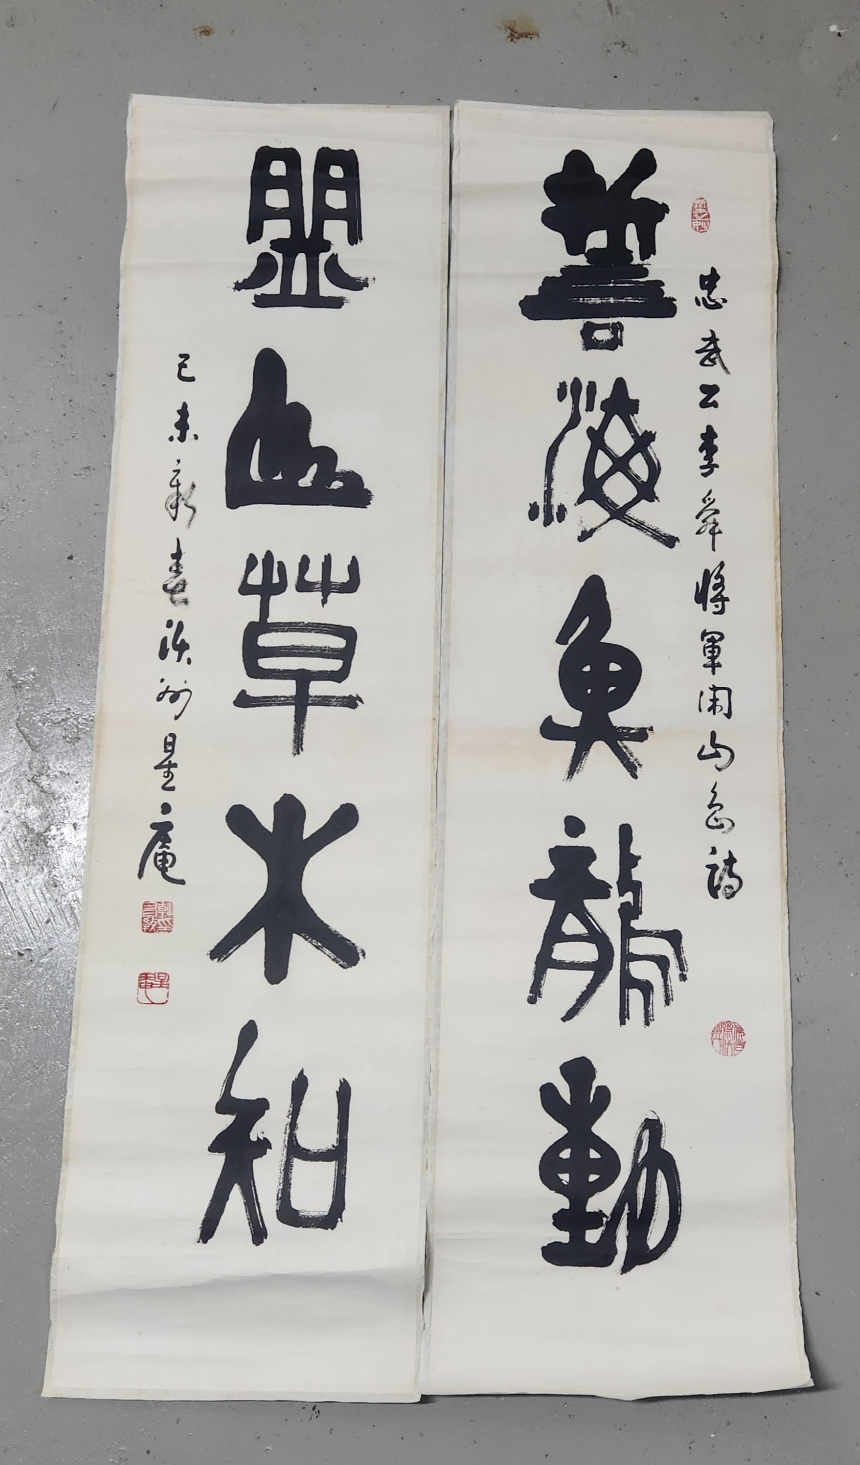 忠武公李舜將軍閑山島詩
誓海魚龍動
盟山草木知
己未新春 州星庵